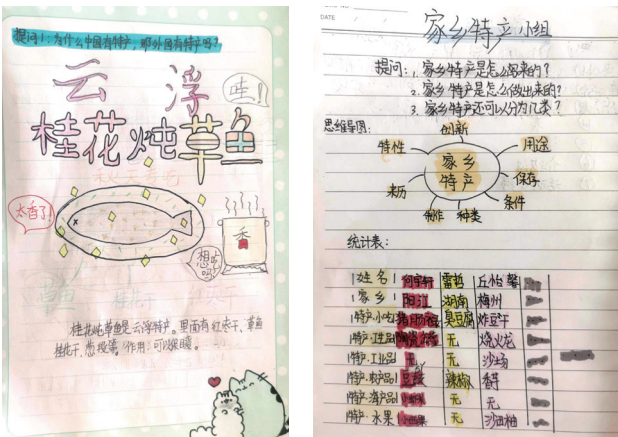 提问1:为什么中国有特产,那外国有特产吗?
云浮
哇!
桂花炖草鱼
太香了!
香
想吃吗?
桂花炖草鱼是云浮特产。里面有红枣干、草鱼
桂花干、葱段等。作用:可以暖
DATE
家乡特产小组
提问:1. 家乡特产是怎么得来的?
2. 家乡特产是怎么做出来的?
3. 家乡特产还可以分为几类?
思维导图:
创新
特性
用途
家乡
特产
保存
来历
条件
制作
种类
统计表:
姓名 何宇轩 雷哲 丘怡馨
家乡 阳江 湖南 梅州
特产·小吃 臭豆腐 炸豆干
特产·工艺品 无 烧火龙
特产·工业品 无 无
特产·农产品 豆豉 辣椒 香芋
特产·海产品 无 无
特产·水果 无 沙田柚